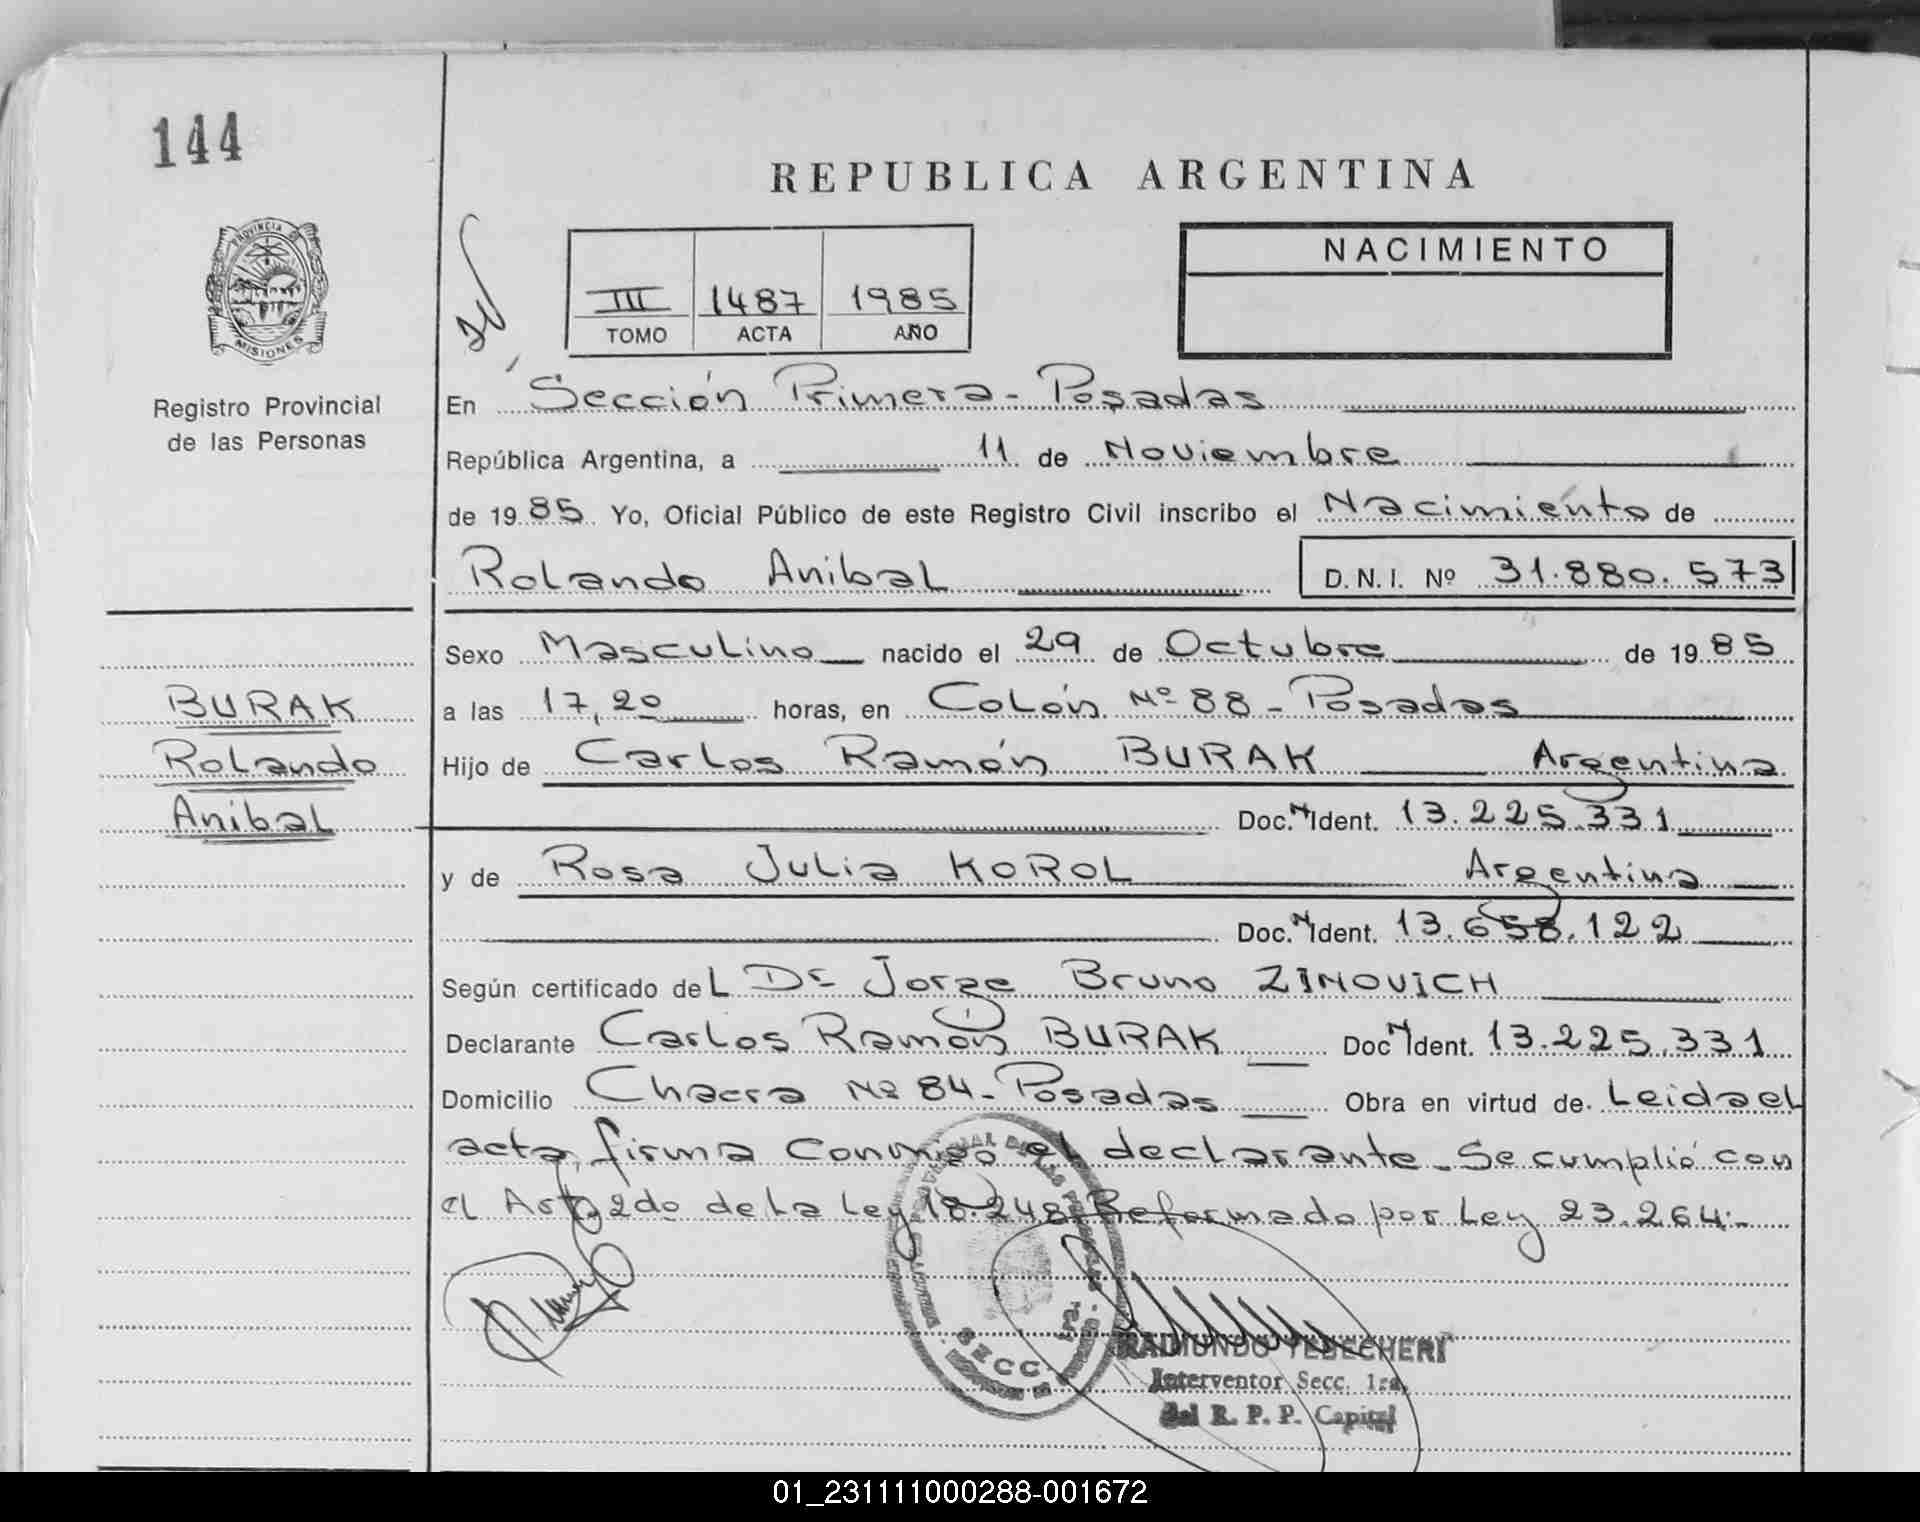 144
REPUBLICA ARGENTINA
PROVINCIA DE
MISIONES
Registro Provincial
de las Personas
III 1487 1985
TOMO ACTA AÑO
NACIMIENTO
En Sección Primera - Posadas
República Argentina, a 11 de Noviembre
de 1985 Yo, Oficial Público de este Registro Civil inscribo el Nacimiento de
Rolando Anibal D.N.I. Nº 31.880.573
Sexo Masculino nacido el 29 de Octubre de 1985
a las 17,20 horas, en Colón Nº 88 - Posadas
BURAK
Rolando
Anibal
Hijo de Carlos Ramón BURAK Argentina
Doc. N Ident. 13.225.331
y de Rosa Julia KOROL Argentina
Doc. N Ident. 13.658.122
Según certificado del Dr Jorge Bruno ZINOVICH
Declarante Carlos Ramón BURAK Doc N Ident. 13.225.331
Domicilio Chacra Nº 84 - Posadas Obra en virtud de Leida el
acta, firma conmigo el declarante - Se cumplió con
el Art. 2do de la Ley 18.248 Reformado por Ley 23.264.-
SECC. 1ra.
RAIMUNDO YEDECHERI
Interventor Secc. 1ra.
del R. P. P. Capital
01_231111000288-001672